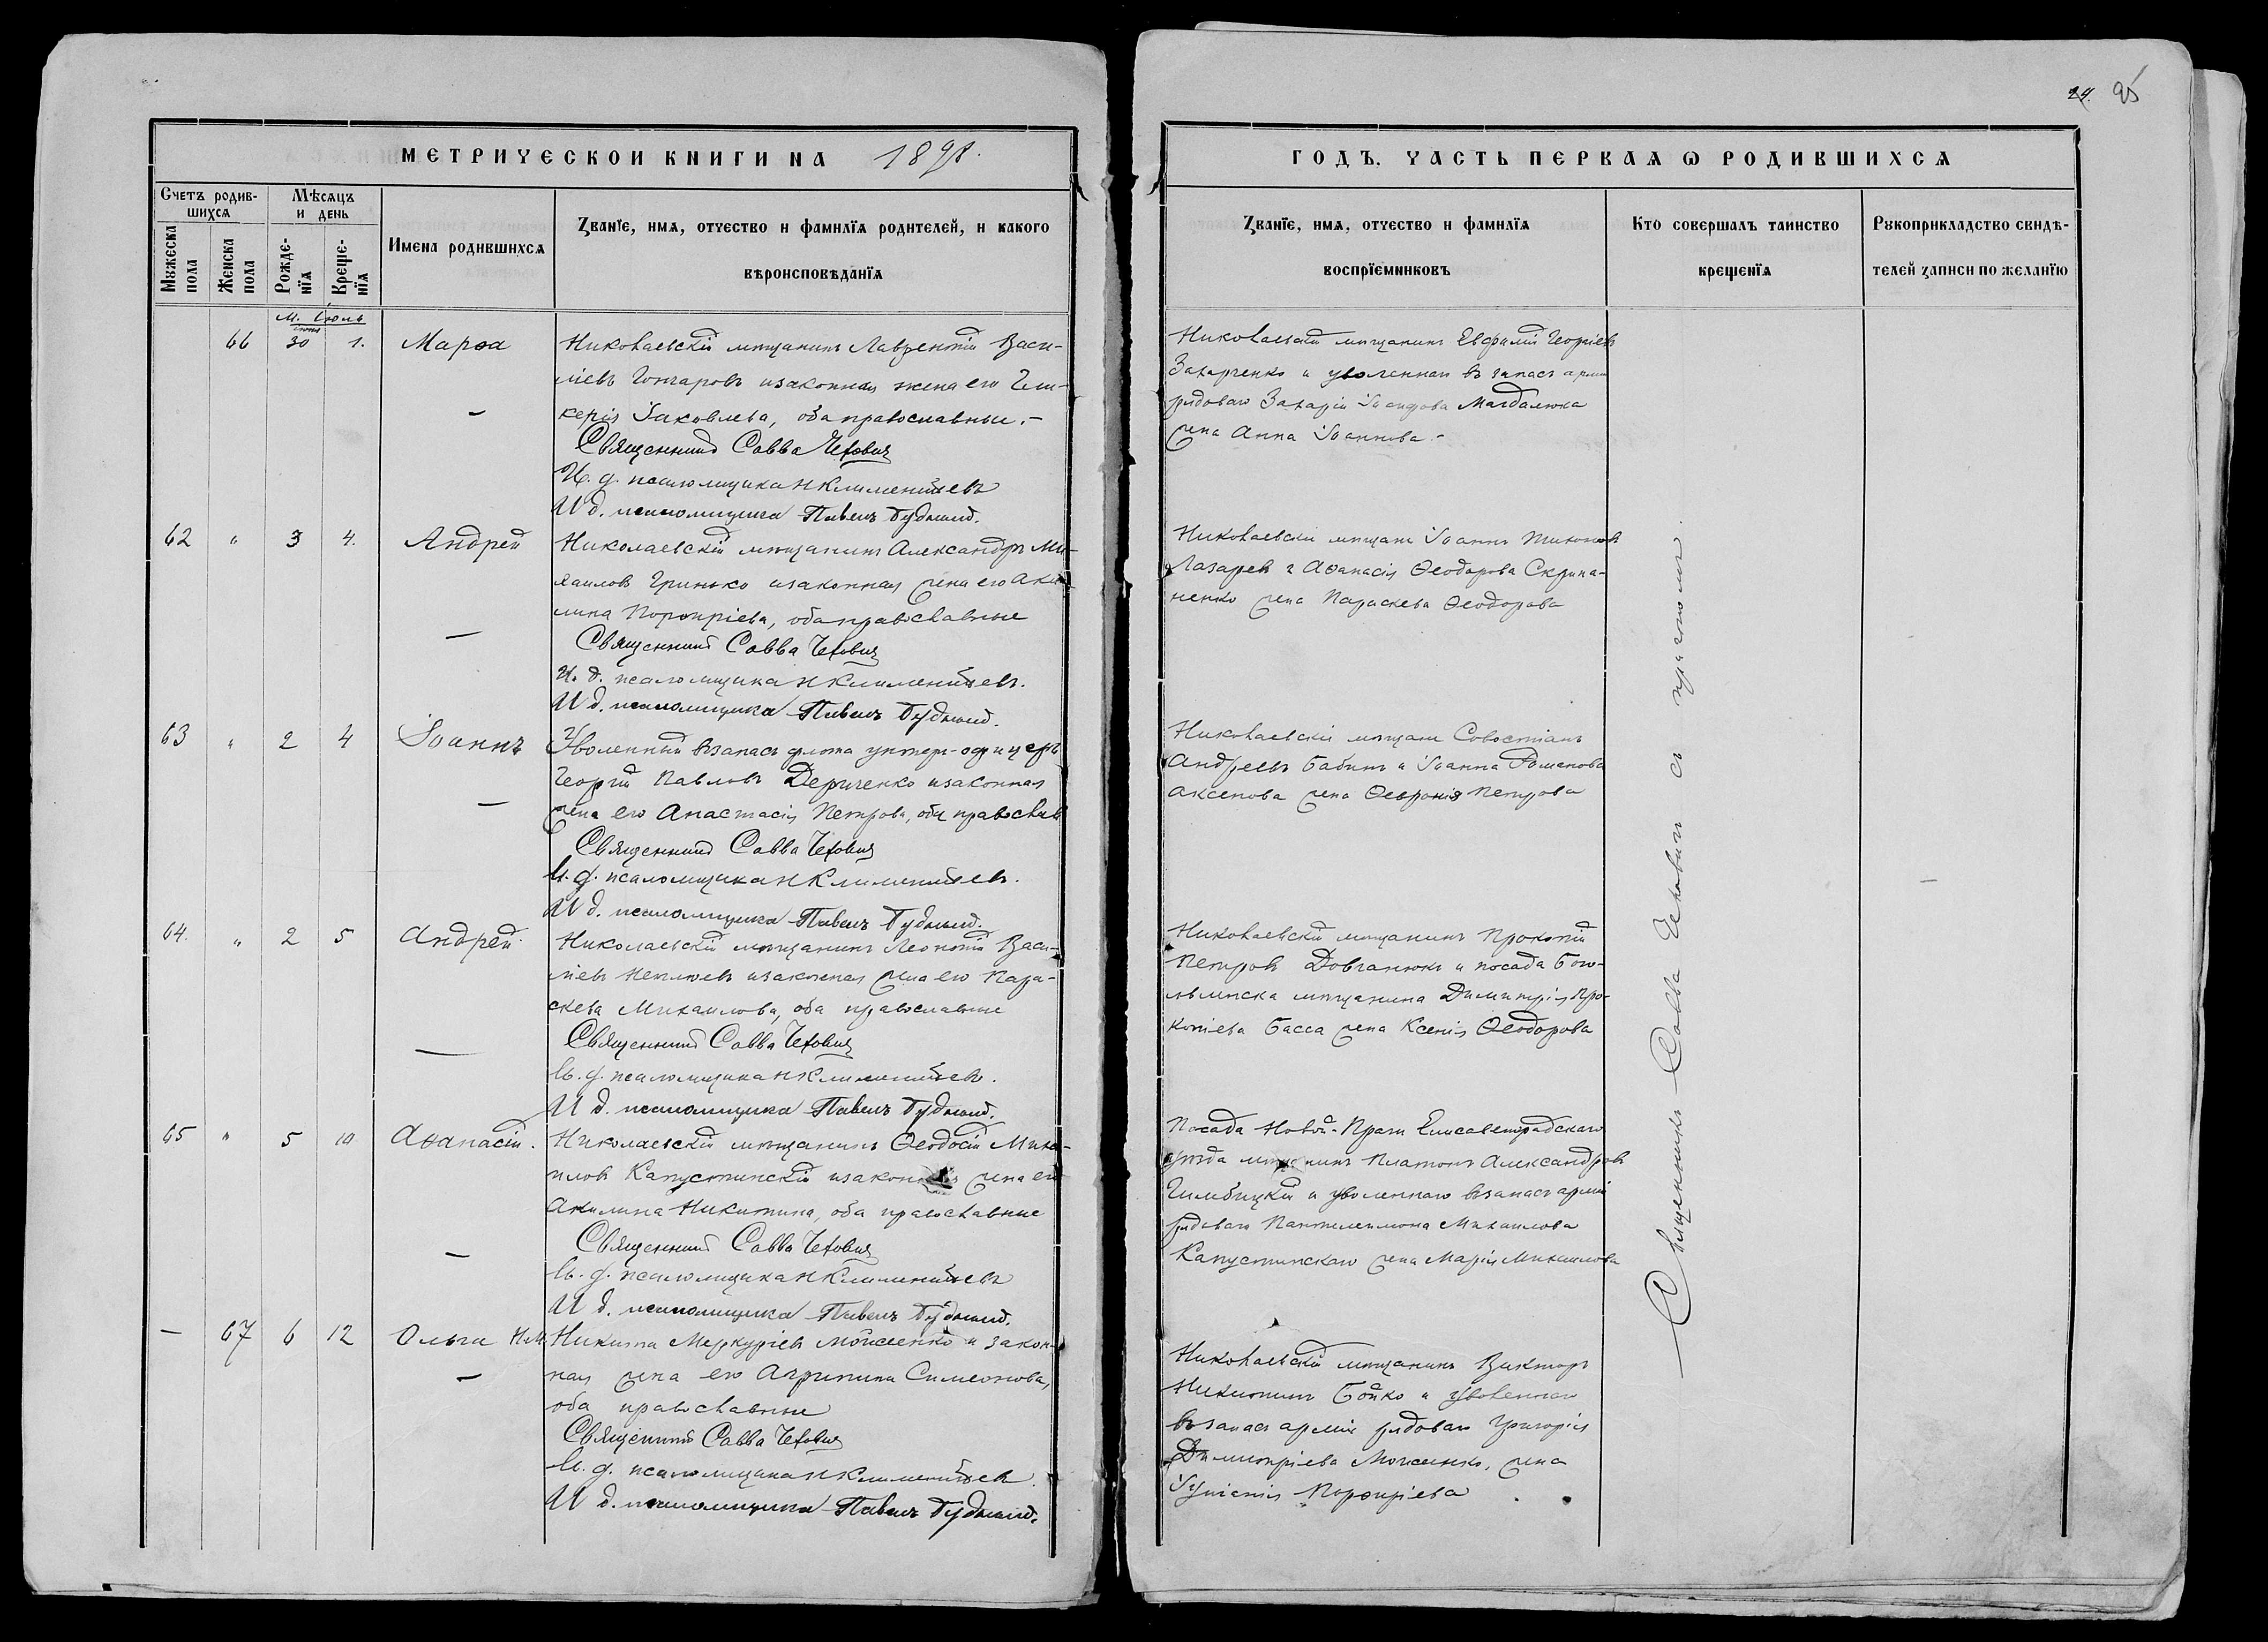 24. 25
МЕТРИЧЕСКОЙ КНИГИ НА 1898.
ГОДЪ, ЧАСТЬ ПЕРВАЯ Ѡ РОДИВШИХСЯ
Счетъ родив-
шихся
Мѣсяцъ
и день
Мужеска
пола
Женска
пола
Рожде-
нїя
Креще-
нїя
Имена родившихся
Званїе, имя, отчество и фамилїя родителей, и какого
вѣроисповѣданїя
Званїе, имя, отчество и фамилїя
воспрїемниковъ
Кто совершалъ таинство
крещенїя
Рукоприкладство свидѣ-
телей записи по желанїю
м. Іюль
іюня
66 30 1. Марѳа
Николаевскій мѣщанинъ Лаврентій Васи-
ліевъ Гончаровъ и законная жена его Гли-
керія Іаковлева, оба православные.-
Священникъ Савва Чехович
И. д. псаломщика Н Климентьевъ
И д. псаломщика Павелъ Будкинъ.
Николаевскій мѣщанинъ Евфимій Георгіевъ
Захарченко и уволеннаго въ запасъ арміи
рядоваго Захарія Іосифова Магдалюка
жена Анна Іоаннова.-
62 " 3 4. Андрей
Николаевскій мѣщанинъ Александръ Ми-
хаиловъ Гринько и законная жена его Аки-
лина Порфиріева, оба православные
Священникъ Савва Чехович
И. д. псаломщика Н Климентьевъ.
И д. псаломщика Павелъ Будкинъ.
Николаевскіе мѣщане Іоаннъ Тихоновъ
Лазаревъ и Аѳанасія Ѳеодорова Скрипа-
ненко жена Параскева Ѳеодорова
63 " 2 4 Іоаннъ
Уволенный въ запасъ флота унтеръ-офицеръ
Георгій Павловъ Дериченко и законная
жена его Анастасія Петрова, оба православ
Священникъ Савва Чехович
И. д. псаломщика Н Климентьевъ.
И д. псаломщика Павелъ Будкинъ.
Николаевскіе мѣщане Савостіанъ
Андреевъ Бабинъ и Іоанна Романова
Аксенова жена Ѳевронія Петрова
64. " 2 5 Андрей.
Николаевскій мѣщанинъ Леонтій Васи-
ліевъ Неплюевъ и законная жена его Пара-
скева Михаилова, оба православные
Священникъ Савва Чехович
И. д. псаломщика Н Климентьевъ.
И д. псаломщика Павелъ Будкинъ.
Николаевскій мѣщанинъ Прокопій
Петровъ Довганюкъ и посада Бого-
явленска мѣщанина Димитрія Про-
копіева Басса жена Ксенія Ѳеодорова
65 " 5 10 Аѳанасій.
Николаевскій мѣщанинъ Ѳеодосій Миха-
иловъ Капустинскій и законная жена его
Акилина Никитина, оба православные
Священникъ Савва Чехович
И. д. псаломщика Н Климентьевъ
И д. псаломщика Павелъ Будкинъ.
Посада Новой-Праги Елисаветградскаго
уѣзда мѣщанинъ Платонъ Александровъ
и уволеннаго въ запасъ арміи
рядоваго Пантелеимона Михаилова
Капустинскаго жена Марія Михаилова
— 67 6 12 Ольга Ник.
Никита Меркуріевъ Мойсеенко и закон-
ная жена его Агрипина Симеонова,
оба православные
Священникъ Савва Чехович
И. д. псаломщика Н Климентьевъ.
И д. псаломщика Павелъ Будкинъ.
Николаевскій мѣщанинъ Викторъ
Никитинъ Бойко и уволеннаго
въ запасъ арміи рядоваго Григорія
Димитріева Мойсеенко, жена
Порфиріева
Священникъ Савва Чехович съ причтомъ.